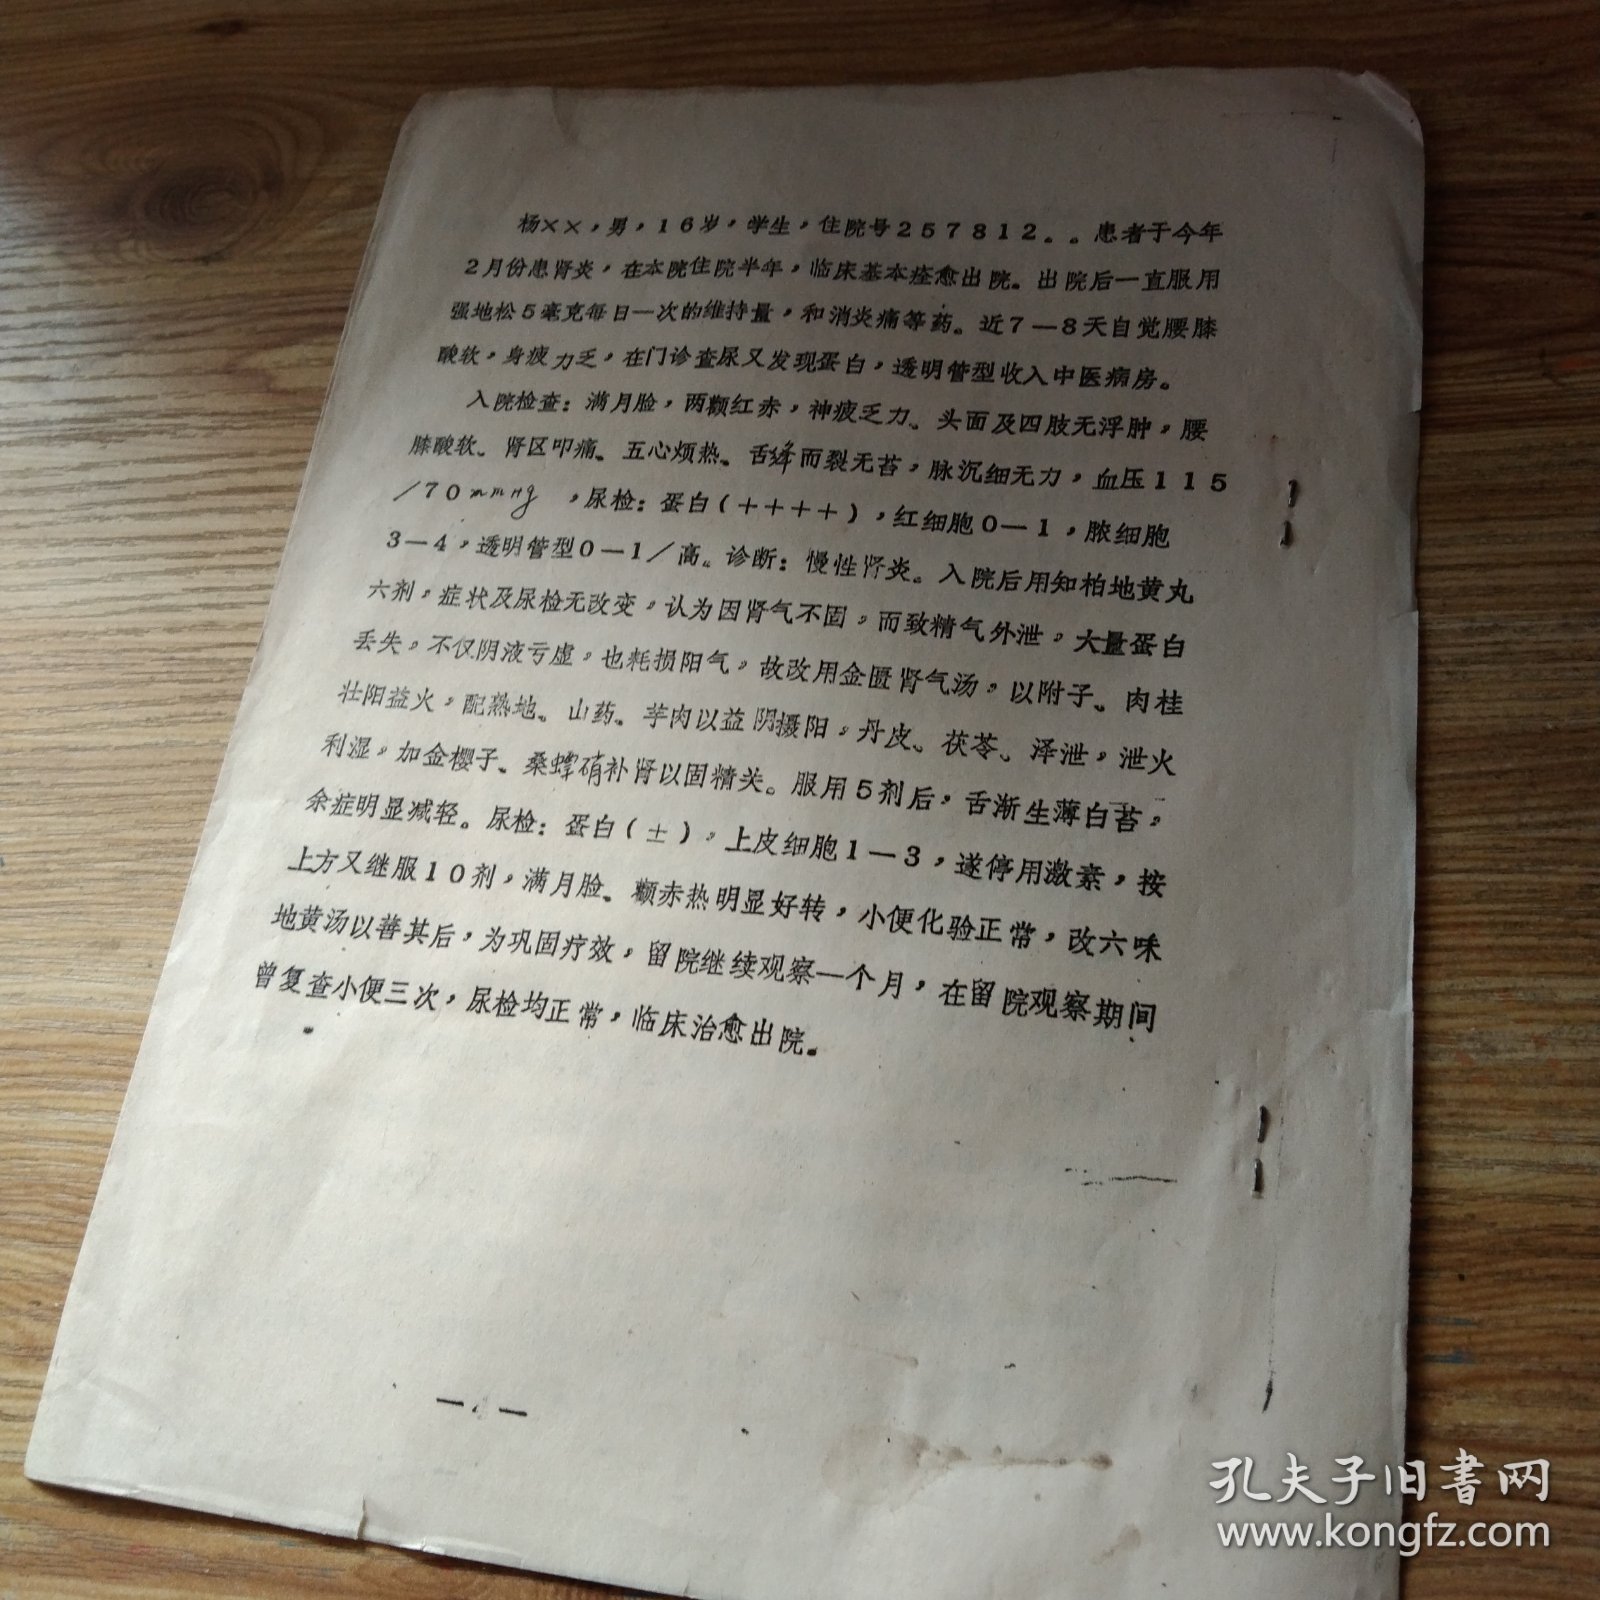 杨××，男，16岁，学生，住院号257812。。患者于今年
2月份患肾炎，在本院住院半年，临床基本痊愈出院。出院后一直服用
强地松5毫克每日一次的维持量，和消炎痛等药。近7—8天自觉腰膝
酸软，身疲力乏，在门诊查尿又发现蛋白，透明管型收入中医病房。
入院检查：满月脸，两颧红赤，神疲乏力、头面及四肢无浮肿，腰
膝酸软、肾区叩痛。五心烦热、舌绛而裂无苔，脉沉细无力，血压115
/70mmHg，尿检：蛋白（++++），红细胞0—1，脓细胞
3—4，透明管型0—1/高。诊断：慢性肾炎。入院后用知柏地黄丸
六剂，症状及尿检无改变，认为因肾气不固，而致精气外泄，大量蛋白
丢失，不仅阴液亏虚，也耗损阳气，故改用金匮肾气汤，以附子、肉桂
壮阳益火，配熟地、山药、芋肉以益阴摄阳，丹皮、茯苓、泽泄，泄火
利湿，加金樱子、桑螵硝补肾以固精关。服用5剂后，舌渐生薄白苔，
余症明显减轻。尿检：蛋白（±），上皮细胞1—3，遂停用激素，按
上方又继服10剂，满月脸、颧赤热明显好转，小便化验正常，改六味
地黄汤以善其后，为巩固疗效，留院继续观察一个月，在留院观察期间
曾复查小便三次，尿检均正常，临床治愈出院。
—4—
孔夫子旧书网
www.kongfz.com